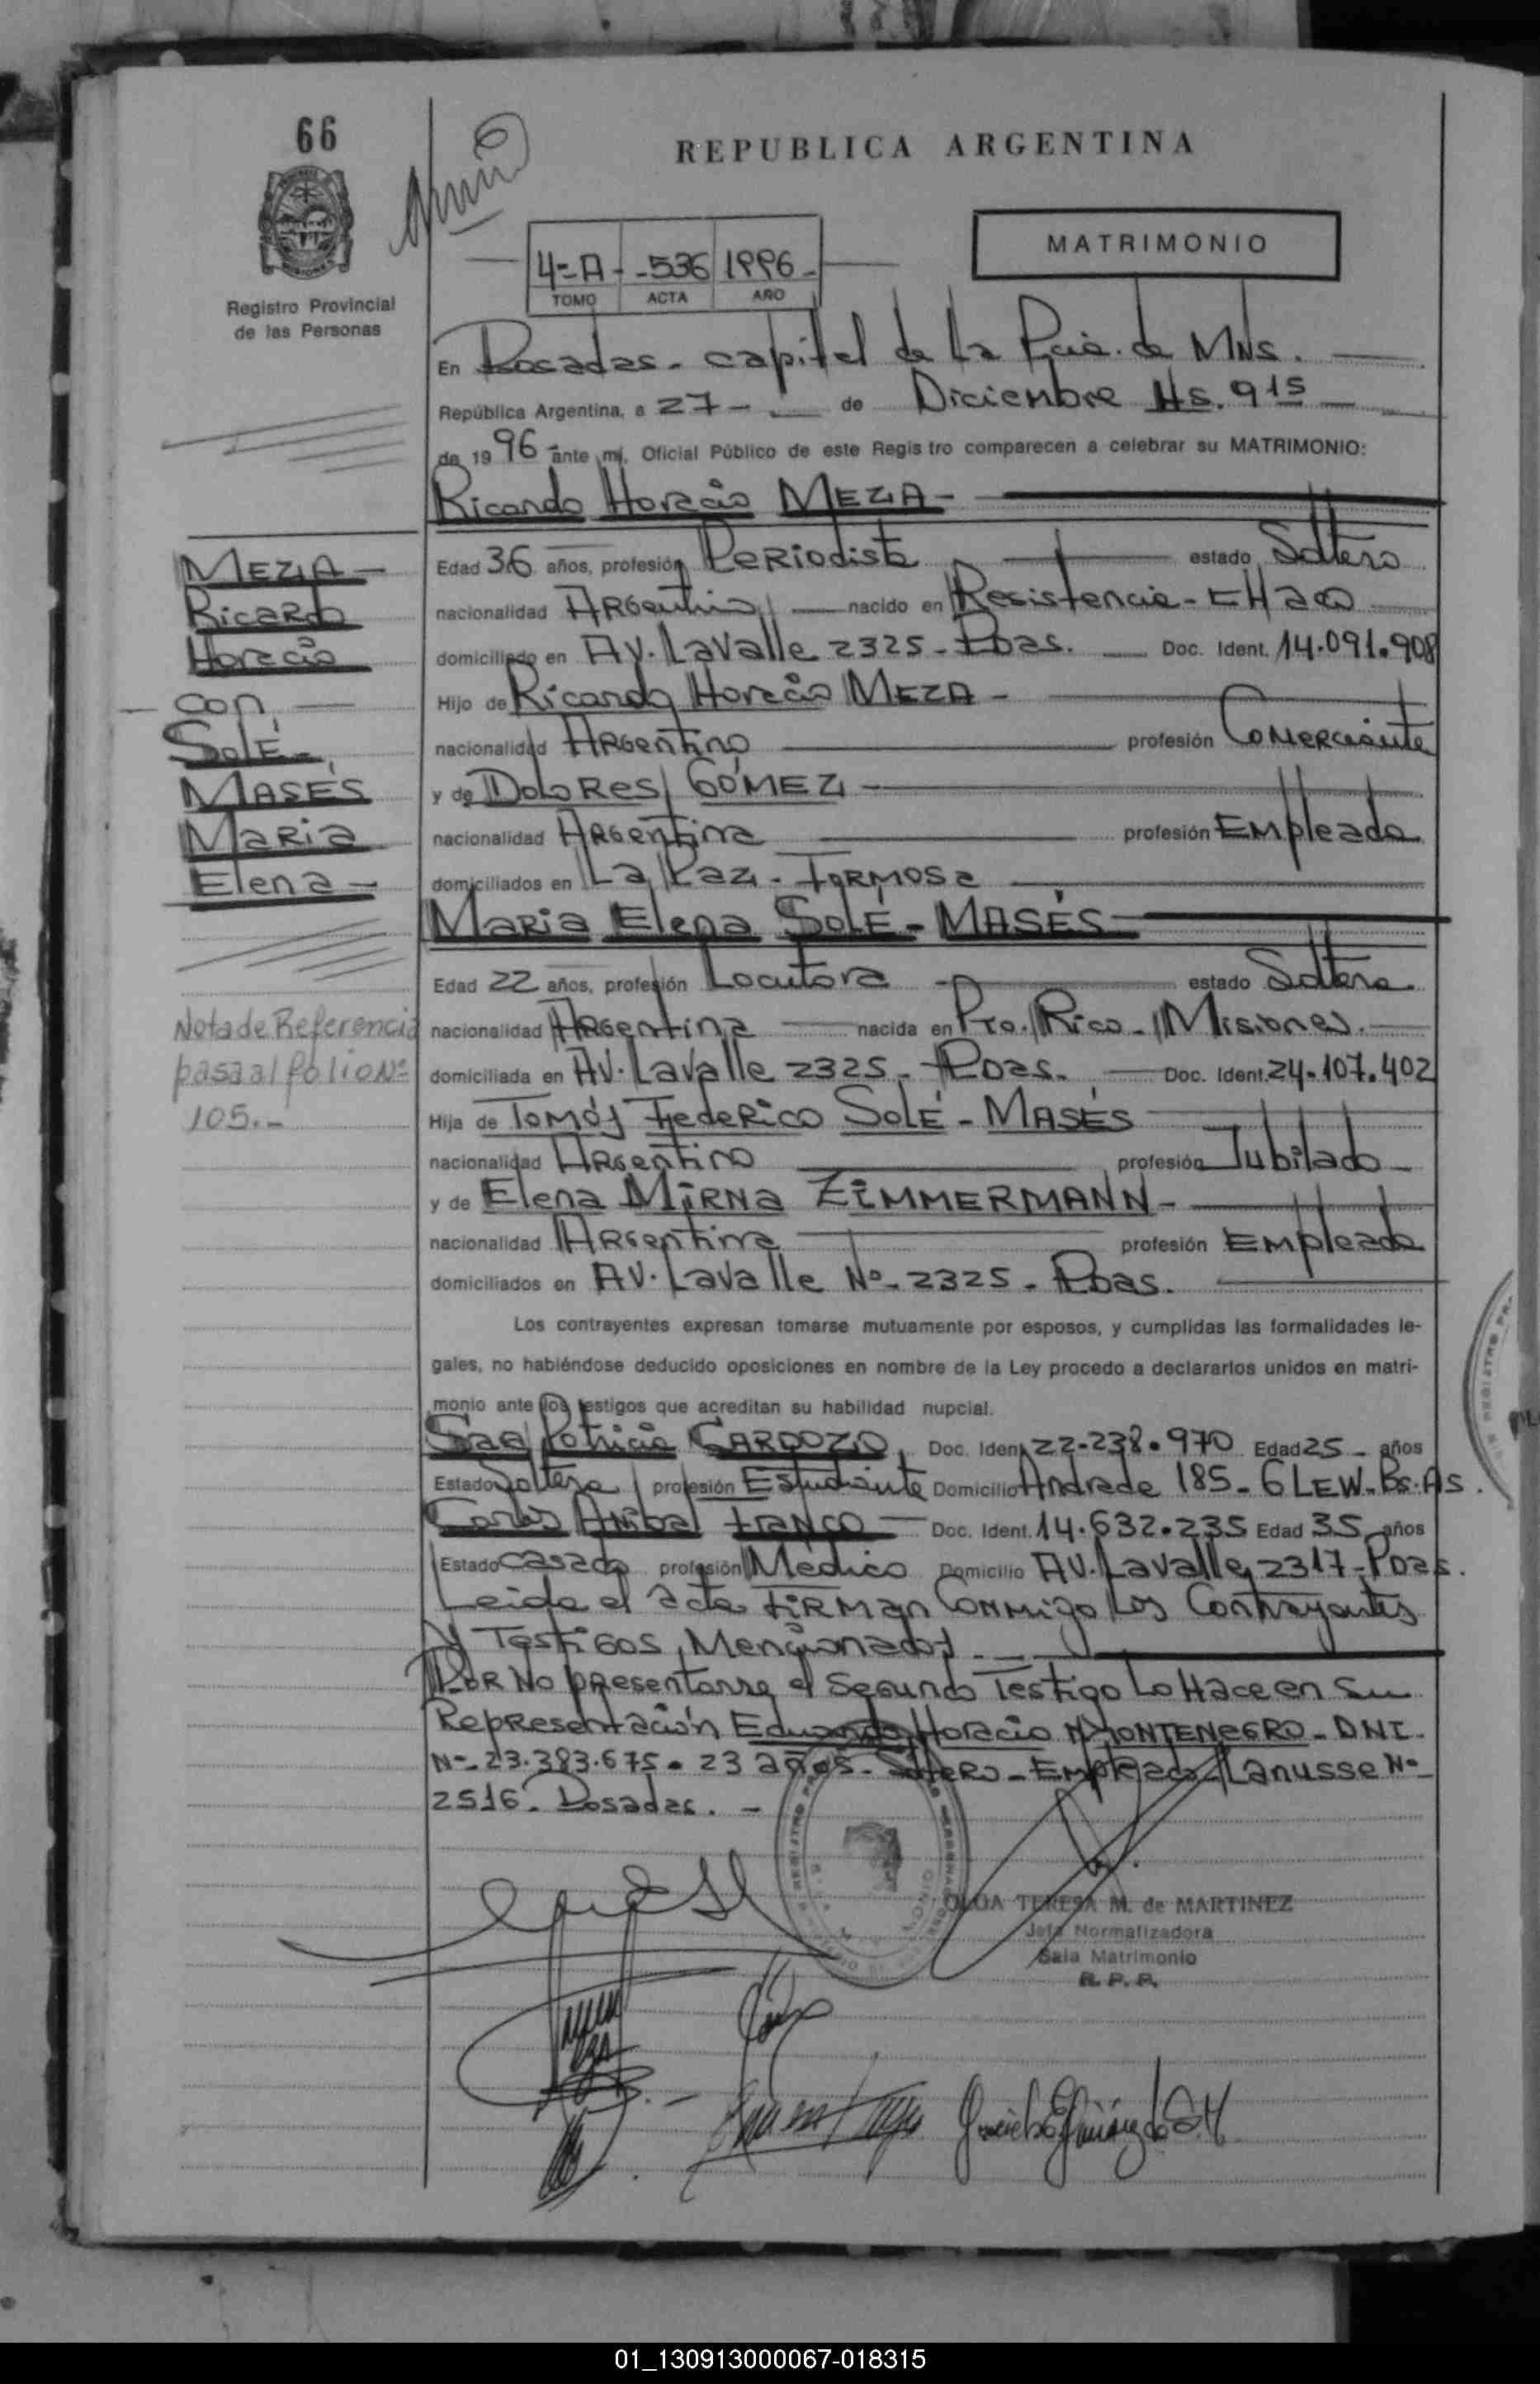 66
REPUBLICA ARGENTINA
MATRIMONIO
4=A - -536 1996-
TOMO ACTA AÑO
Registro Provincial
de las Personas
En Posadas - capital de la Pcia. de MNS.
República Argentina, a 27 - de Diciembre Hs. 9 15
de 19 96 ante mí, Oficial Público de este Registro comparecen a celebrar su MATRIMONIO:
Ricardo Horacio MEZA -
MEZA -
Ricardo
Horacio
con
SOLÉ -
MASÉS
Maria
Elena -
Edad 36 años, profesión Periodista estado Soltero
nacionalidad Argentino nacido en Resistencia - CHaco
domiciliado en AV. Lavalle 2325 - Pdas. Doc. Ident. 14.091.908
Hijo de Ricardo Horacio MEZA -
nacionalidad Argentino profesión Comerciante
y de Dolores GÓMEZ
nacionalidad Argentina profesión Empleada
domiciliados en La Paz - Formosa
Maria Elena SOLÉ - MASÉS
Edad 22 años, profesión Locutora estado Soltera
nacionalidad Argentina nacida en Pto. Rico - Misiones.
domiciliada en AV. Lavalle 2325 - Pdas. Doc. Ident. 24.107.402
Hija de Tomás Federico SOLÉ - MASÉS
nacionalidad Argentino profesión Jubilado -
y de Elena Mirna ZIMMERMANN -
nacionalidad Argentina profesión Empleada
domiciliados en AV. Lavalle Nº - 2325 - Pdas.
Nota de Referencia
pasa al folio Nº
105.-
Los contrayentes expresan tomarse mutuamente por esposos, y cumplidas las formalidades le-
gales, no habiéndose deducido oposiciones en nombre de la Ley procedo a declararlos unidos en matri-
monio ante los testigos que acreditan su habilidad nupcial.
Patricia CARDOZO Doc. Ident. 22.238.970 Edad 25 - años
Estado Soltera profesión Estudiante Domicilio Andrade 185 - GLEW - Bs. As.
Carlos Anibal FRANCO - Doc. Ident. 14.632.235 Edad 35 años
Estado casado profesión Médico Domicilio AV. Lavalle 2317 - Pdas.
Leida el acta FIRMan Conmigo los Contrayentes
y Testigos Mencionados
Por No presentarse el Segundo Testigo Lo Hace en Su
Representación Eduardo Horacio MONTENEGRO - DNI.
Nº - 23.383.675 - 23 años - Soltero - Empleado - Lanusse Nº
2516 - Posadas. -
OLGA TERESA M. de MARTINEZ
Jefa Normalizadora
Sala Matrimonio
R. P. P.
01_130913000067-018315